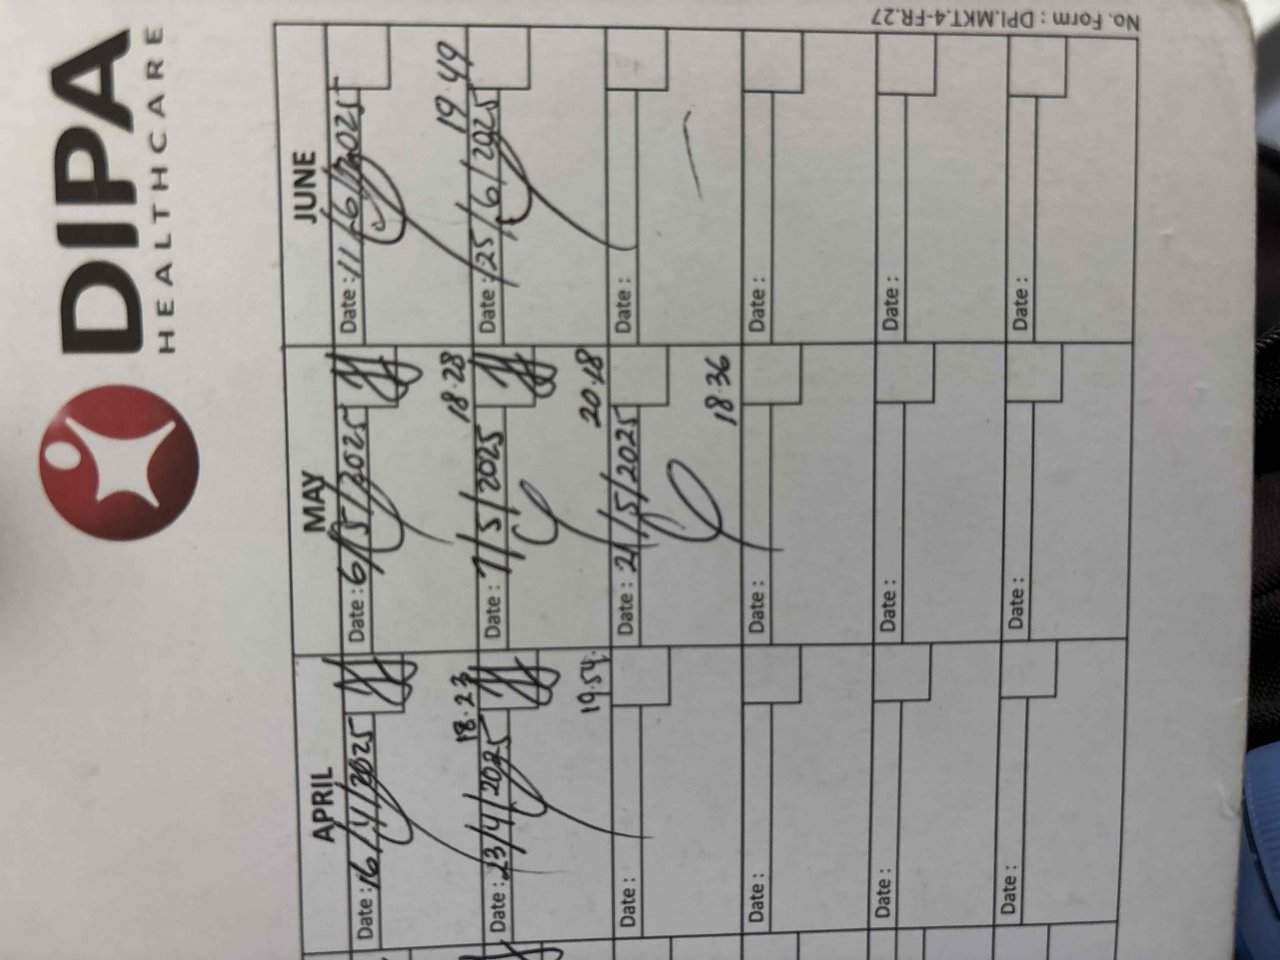 DIPA
HEALTHCARE
APRIL
MAY
JUNE
Date : 16/4/2025
18.23
Date : 6/5/2025
18.28
Date : 11/6/2025
19.49
Date : 23/4/2025
19.54
Date : 7/5/2025
20.18
Date : 25/6/2025
Date :
Date : 21/5/2025
18.36
Date :
Date :
Date :
Date :
Date :
Date :
Date :
Date :
Date :
Date :
No. Form : DPI.MKT.4-FR.27